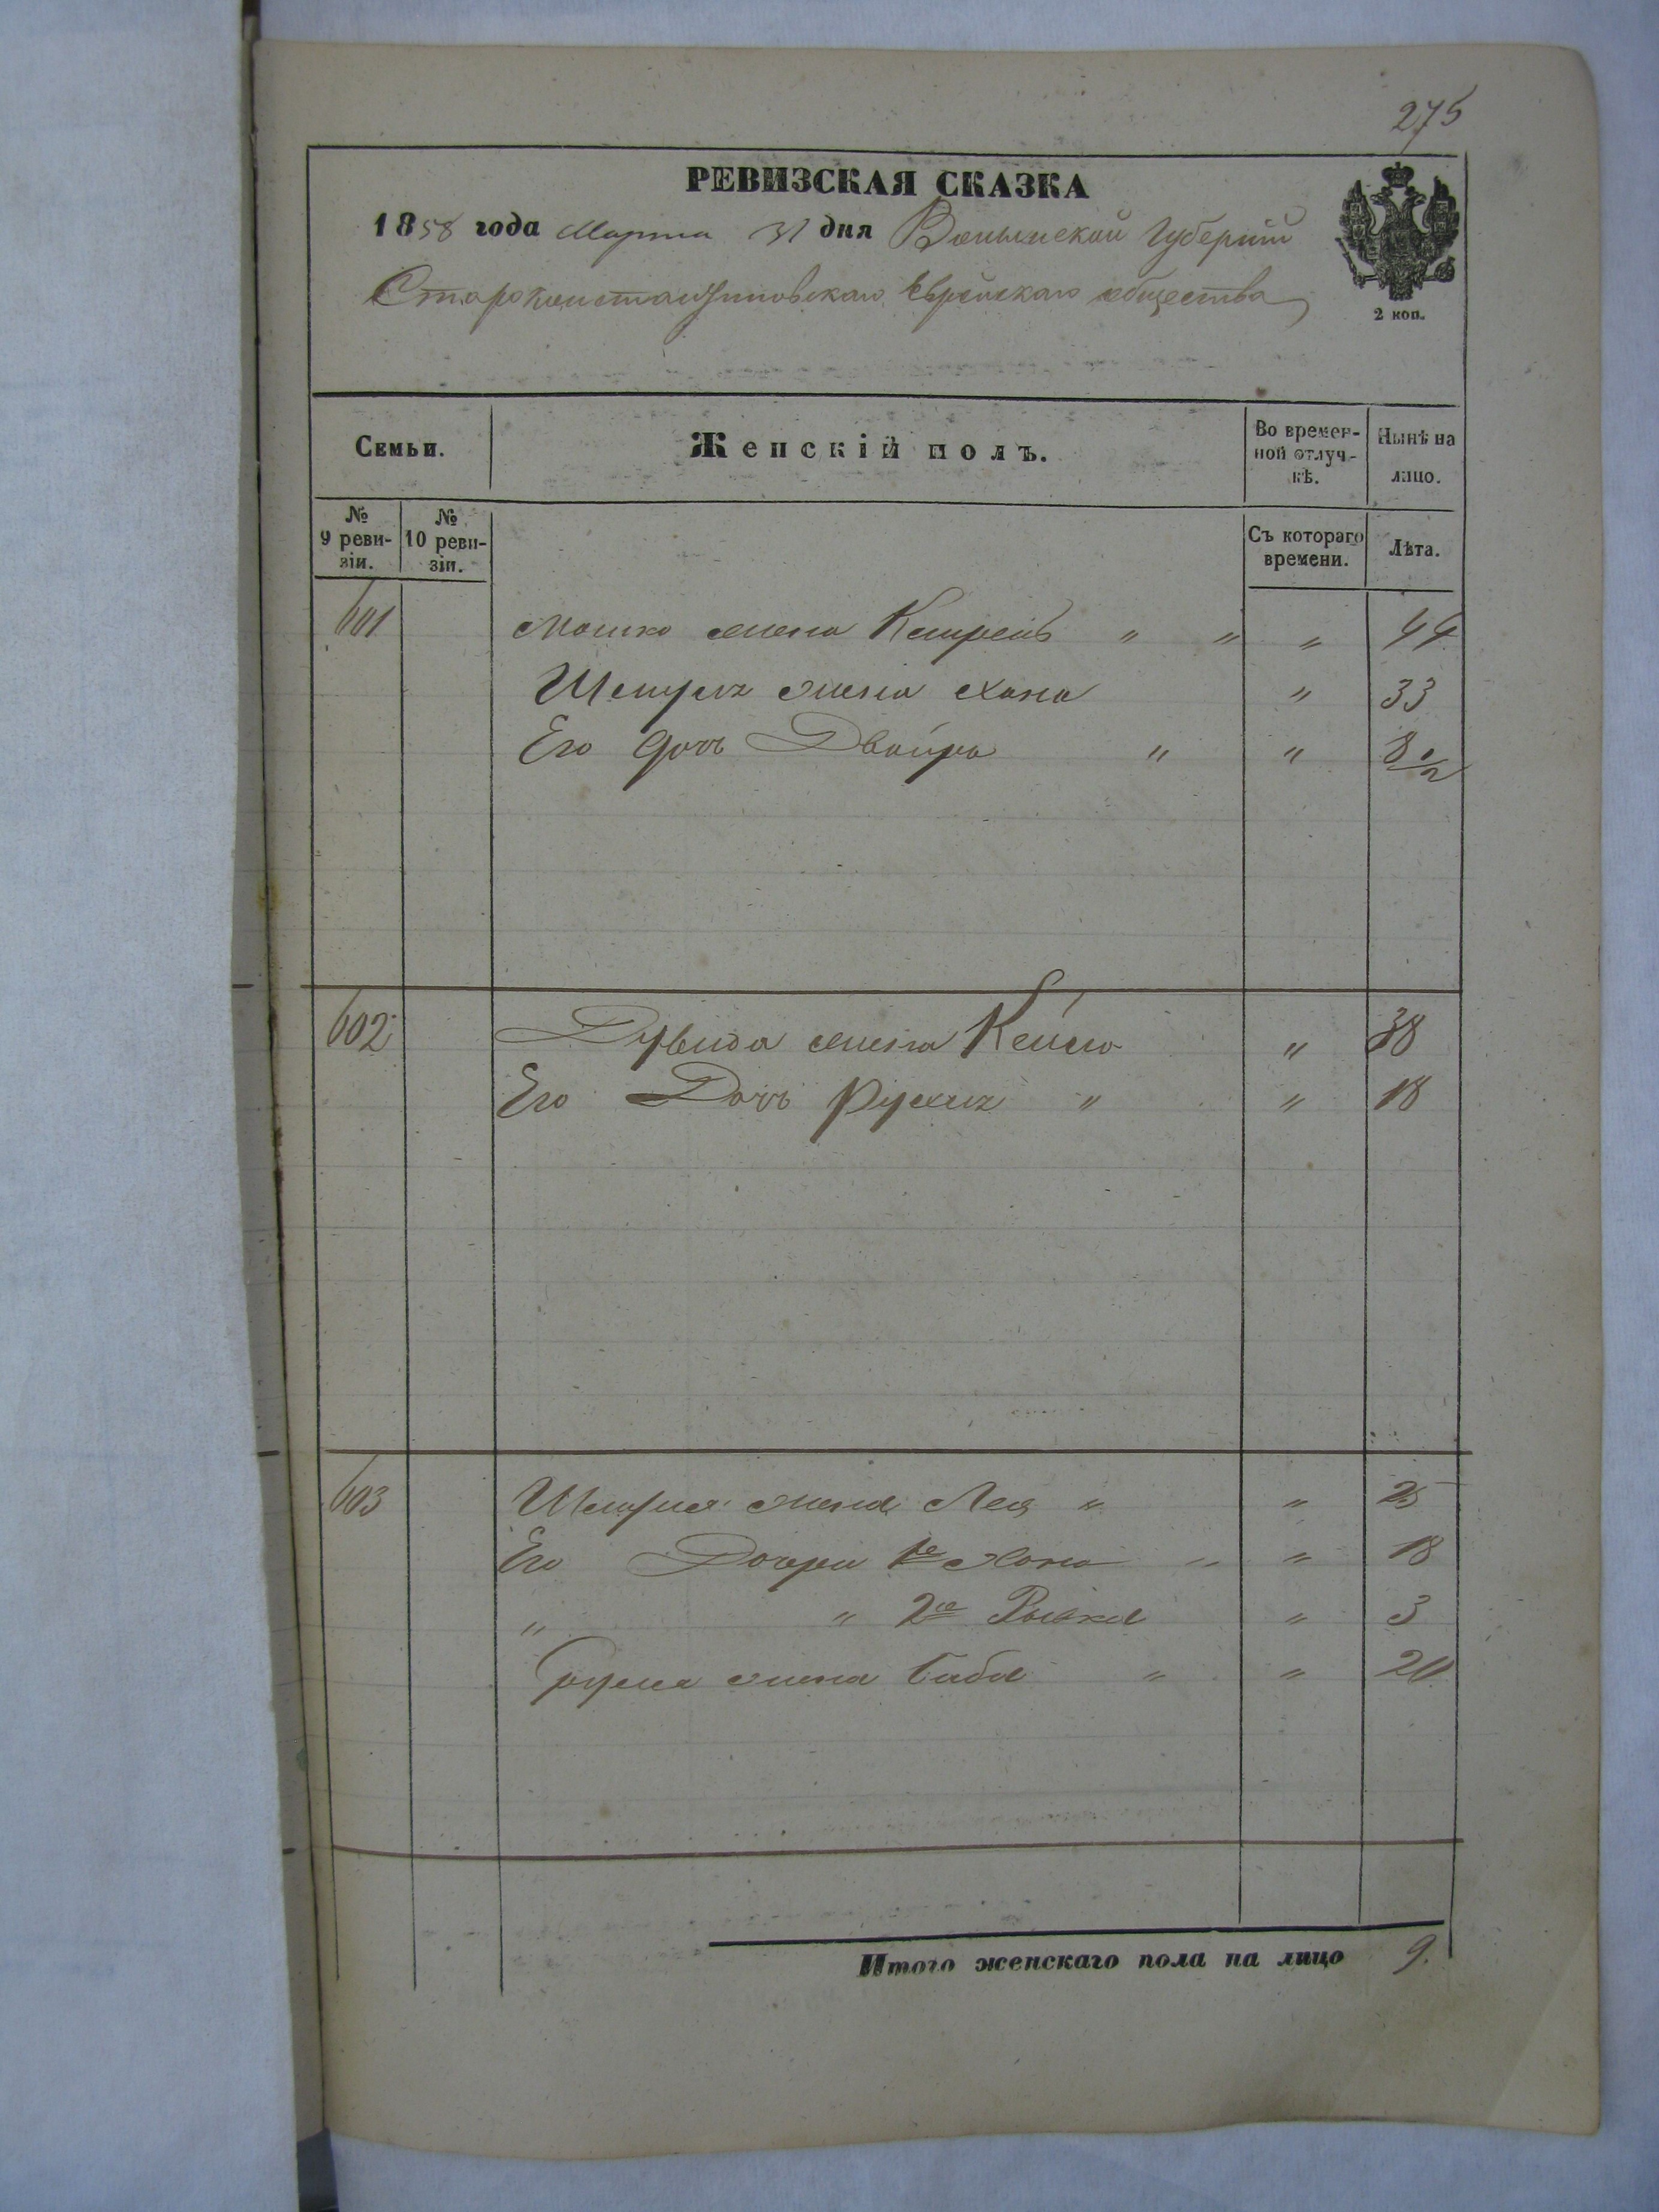 275
РЕВИЗСКАЯ СКАЗКА
1858 года Марта 31 дня Волынской Губернии
Староконстантиновскаго Еврейскаго общества
2 коп.
Семьи.
Женскій полъ.
Во времен-
ной отлуч-
кѣ.
Нынѣ на
лицо.
№
9 реви-
зіи.
№
10 реви-
зіи.
Съ котораго
времени.
Лѣта.
601 Мошко жена " " " 44
жена Хана " 33
Его дочь Двойра " " 8 1/2
602 жена Кейла " 38
Его Дочь Рухля " " 18
603 жена Лея " " 25
Его Дочери 1я Хана " " 18
" " 2я Ривка " 3
жена Баба " " 20
Итого женскаго пола на лицо 9.